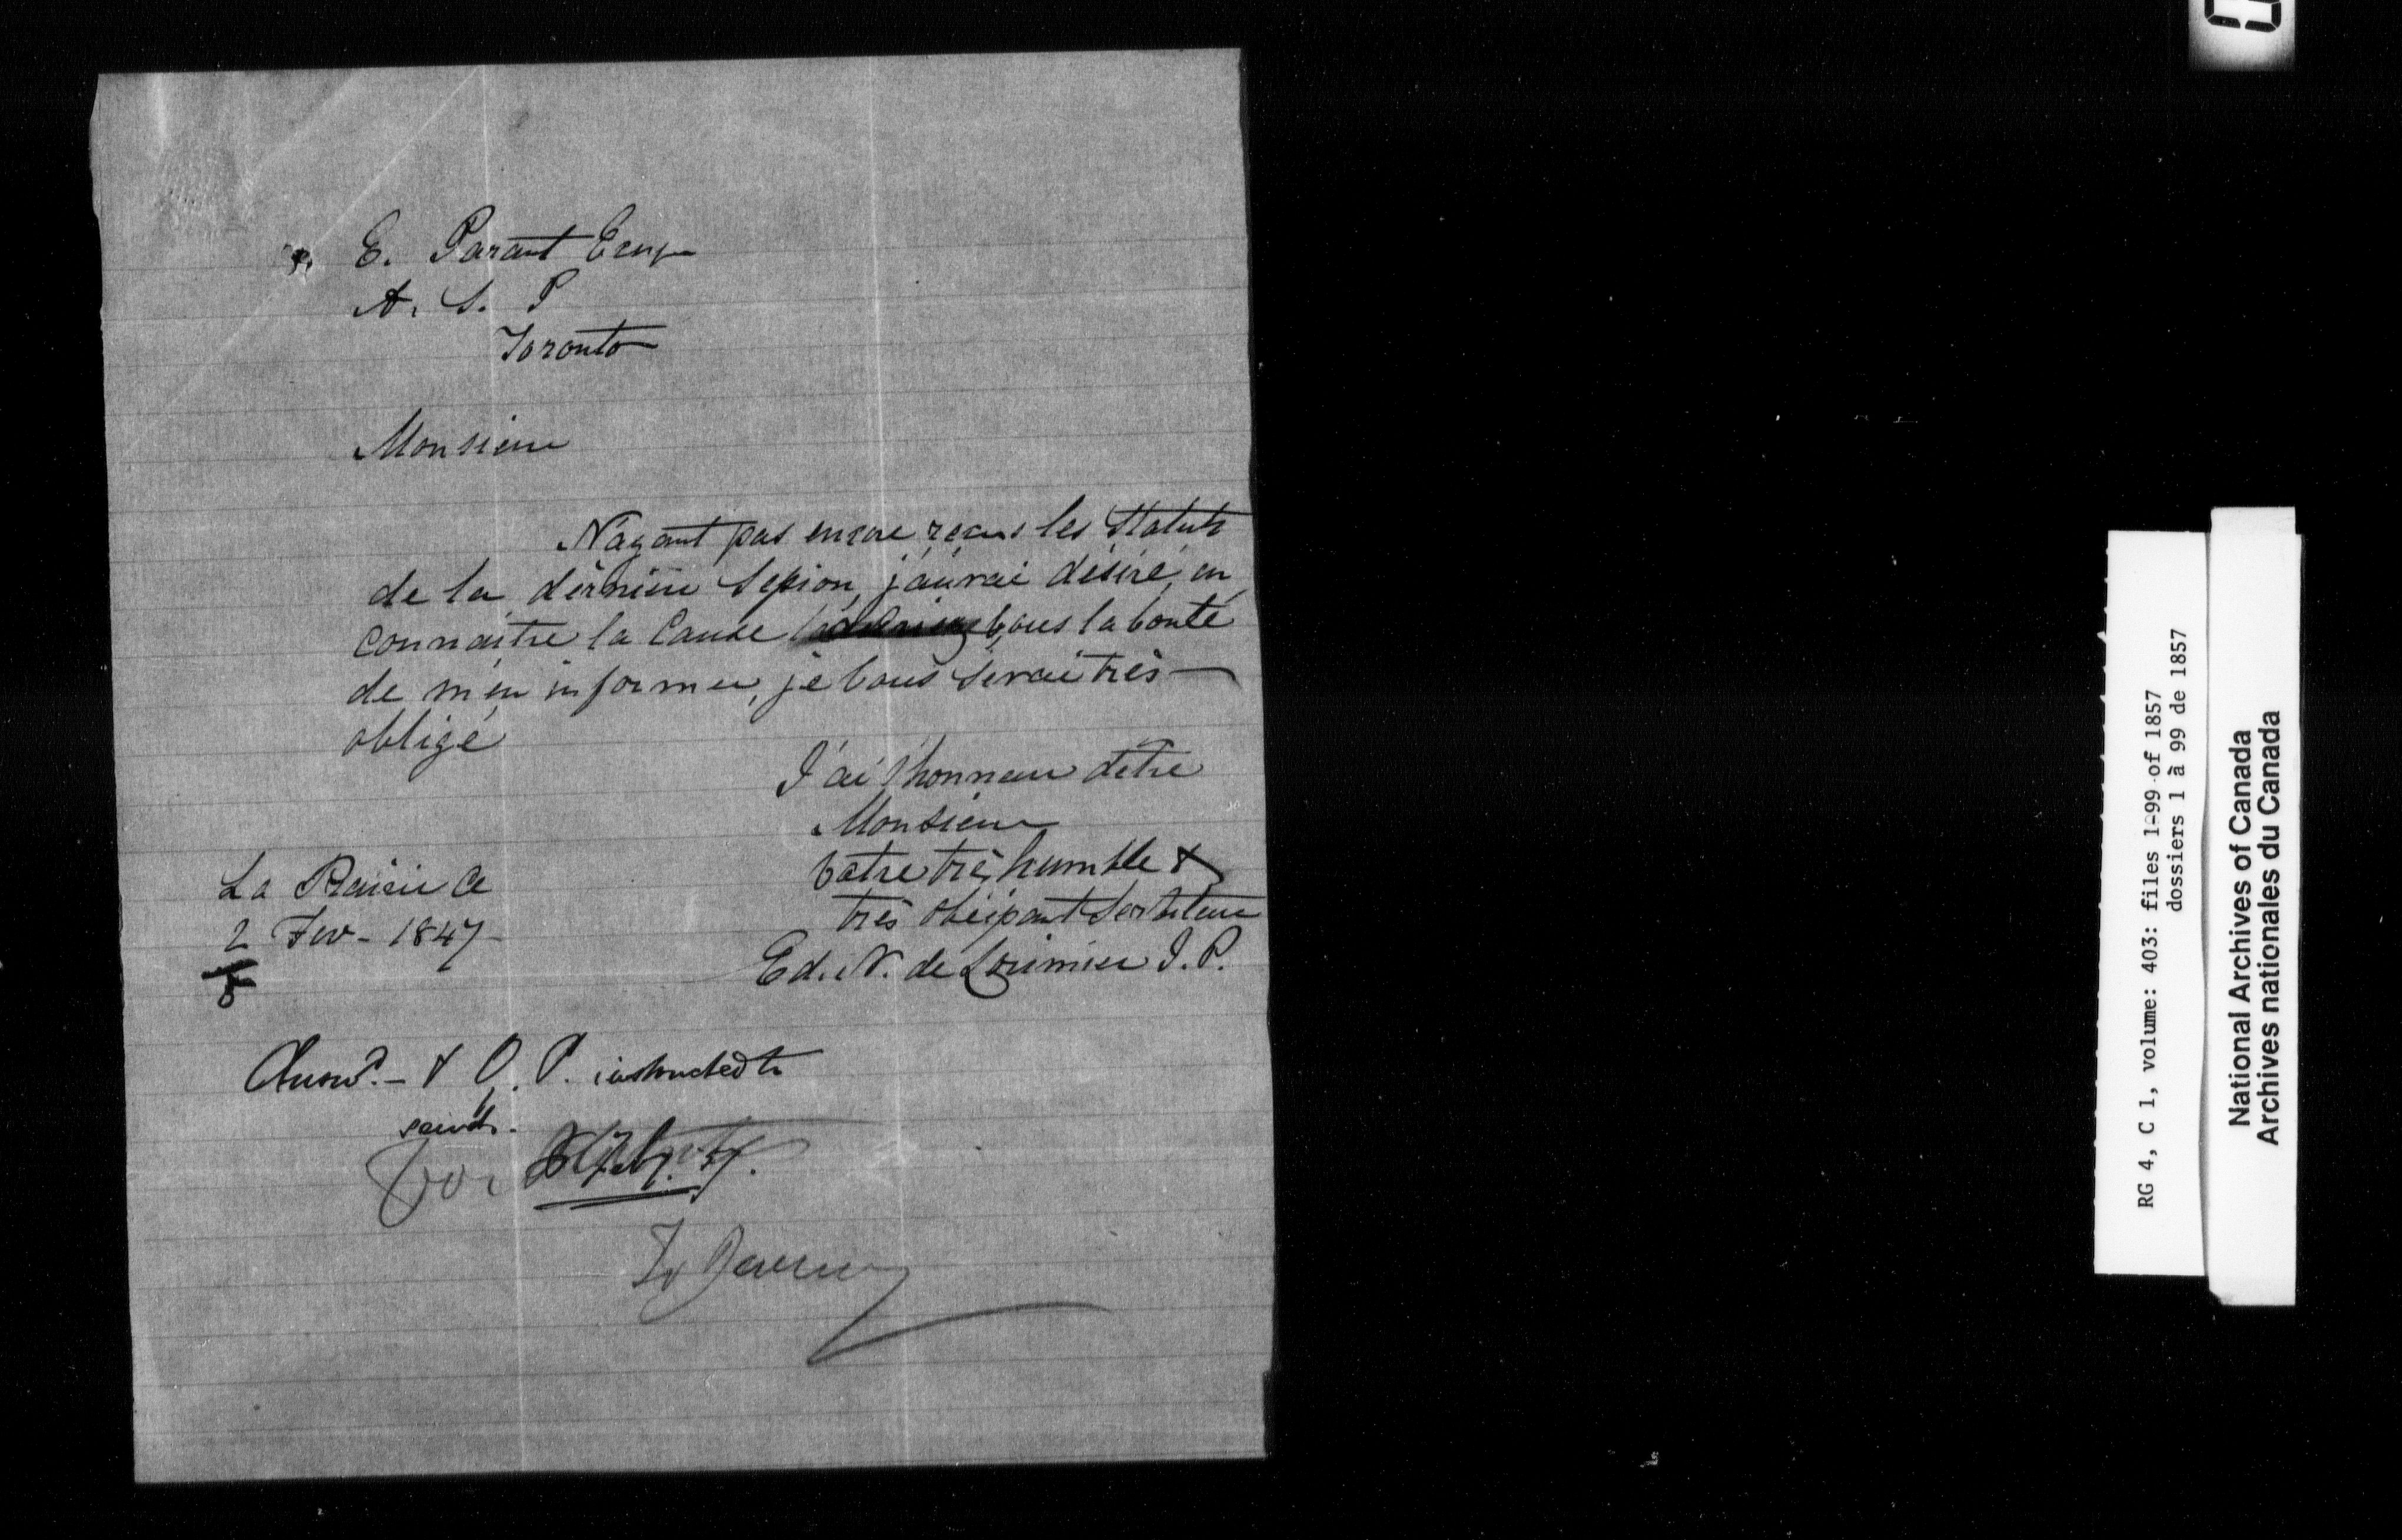 E. Parant Ecuyr
A. S. P
Toronto
Monsieur
N'ayant pas encore recus les Statuts
de la dérnière Session, j'aurai désiré en
connaitre la Cause vous la bonté
de m'en informer, je vous serai très
obligé
J'ai l'honneur d'etre
Monsieur
Votre très humble &
très obéissant Serviteur
Ed. N. de Lorimier J. P.
La Prairie Ce
2 Fev - 1847
Answd. - & Q. P. instructed to
send.
Feby.
RG 4, C 1, volume: 403: files 1-99 of 1857
dossiers 1 à 99 de 1857
National Archives of Canada
Archives nationales du Canada